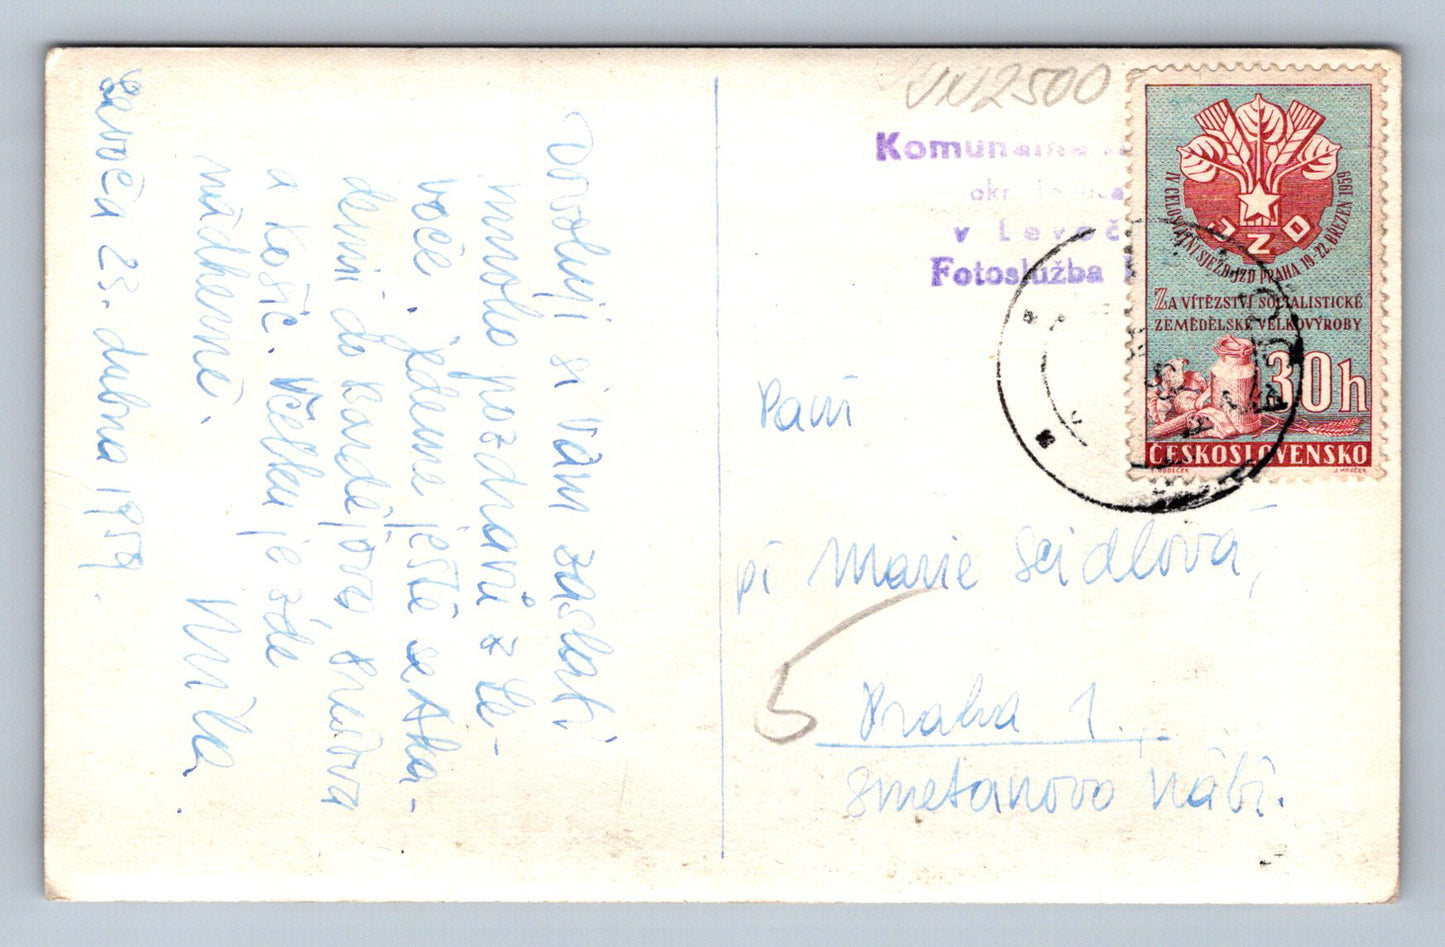 Levoča 23. dubna 1959.
Dovoluji si Vám zaslati
mnoho pozdravů z Le-
voče. jedeme ještě se Aka-
demií do Bardějova Prešova
a Košic. Všechu je zde
nádherné.
Milca
500
Komunálne
v Levoč
Fotoslužba
IV. CELOSTÁTNÍ SJEZD JZD PRAHA 19-22. BŘEZEN 1959
JZD
ZA VÍTĚZSTVÍ SOCIALISTICKÉ
ZEMĚDĚLSKÉ VELKOVÝROBY
30h
ČESKOSLOVENSKO
J. MRÁČEK
Paní
pí Marie Seidlová,
5
Praha 1.
Smetanovo nábř.